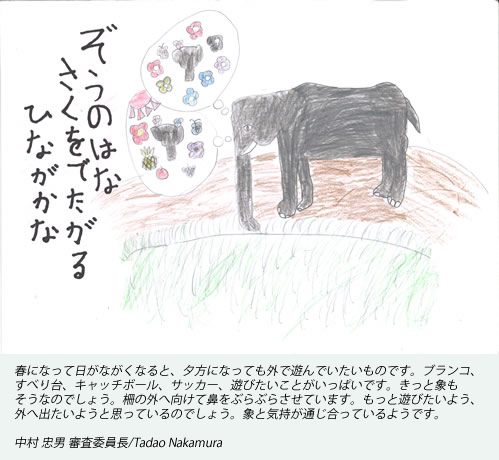 ぞうのはな
さくをでたがる
ひながかな
春になって日がながくなると、夕方になっても外で遊んでいたいものです。ブランコ、
すべり台、キャッチボール、サッカー、遊びたいことがいっぱいです。きっと象も
そうなのでしょう。柵の外へ向けて鼻をぶらぶらさせています。もっと遊びたいよう、
外へ出たいようと思っているのでしょう。象と気持が通じ合っているようです。
中村 忠男 審査委員長/Tadao Nakamura